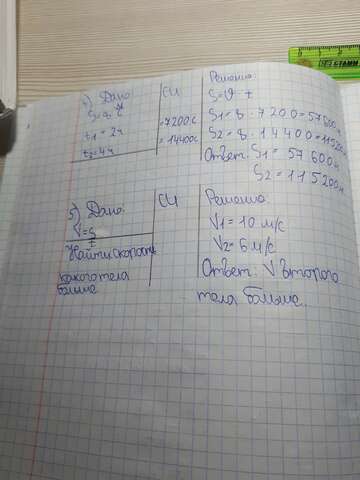 4) Дано
t₁ = 2ч
t₂ = 4ч
СИ
= 7200с
= 14400с
Решение:
S = V · t
S₁ = 8 · 7200 = 57600м
S₂ = 8 · 14400 = 115200м
Ответ: S₁ = 57600м
S₂ = 115200м
5) Дано:
V = S
t
Найти скорость
какого тела
больше
СИ
Решение:
V₁ = 10 м/с
V₂ = 6 м/с
Ответ: V второго
тела больше.